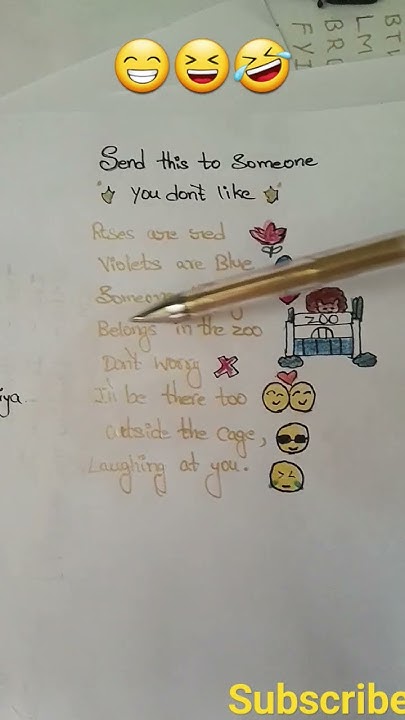 BTW
LM
BR
FYI
Send this to Someone
you don't like
Roses are red
Violets are Blue
Someone
Belongs in the zoo
ZOO
Don't worry
I'll be there too
iya...
outside the cage,
Laughing at you.
Subscribe